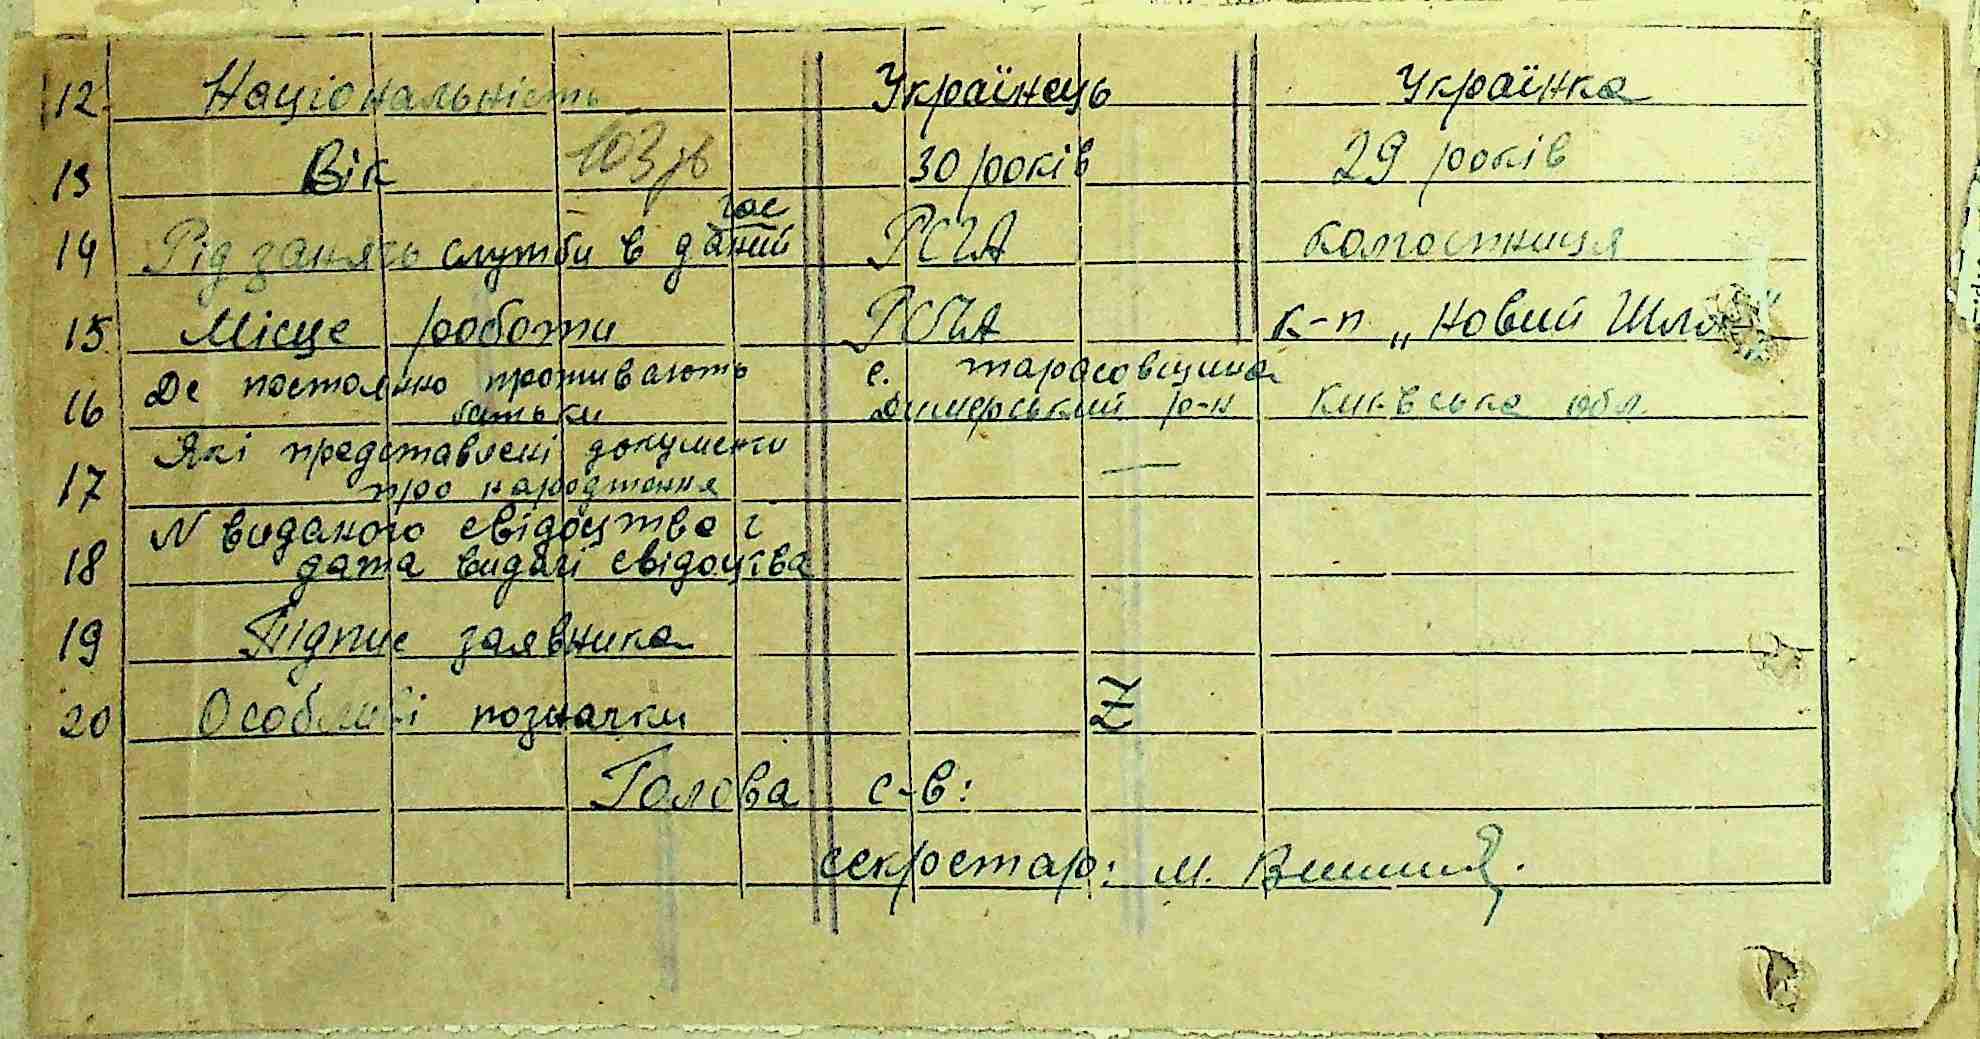 12 Національність Українець Українка
13 Вік 103 зв 30 років 29 років
час
14 Рід занять служби в даний РСЧА колгоспниця
15 Місце роботи РСЧА к-п „Новий Шлях"
16 Де постоянно проживають с. Тарасовщина
батьки Димерський р-н Київська обл.
17 Які представлені документи —
про народження
18 N виданого свідоцтва і
дата видачі свідоцтва
19 Підпис заявника
20 Особливі позначки
Голова с-в:
секретар: М.